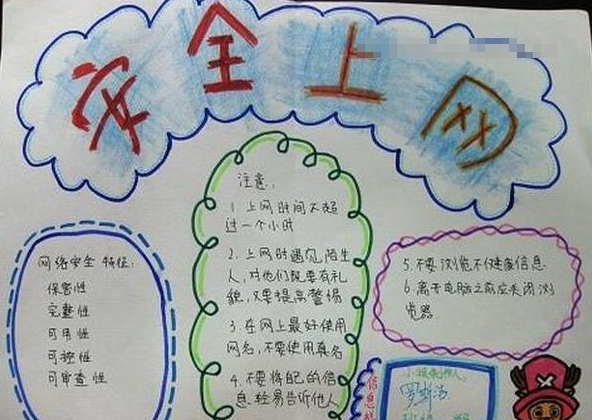 安全上网
网络安全 特征：
保密性
完整性
可用性
可控性
可审查性
注意：
1 上网时间不超
过一个小时
2. 上网时遇见陌生
人，对他们既要有礼
貌，又要提高警惕
3. 在网上最好使用
网名，不要使用真名
4. 不要将自己的信
息轻易告诉他人
5. 不要浏览不健康信息
6. 离开电脑之前应关闭浏
览器
信息